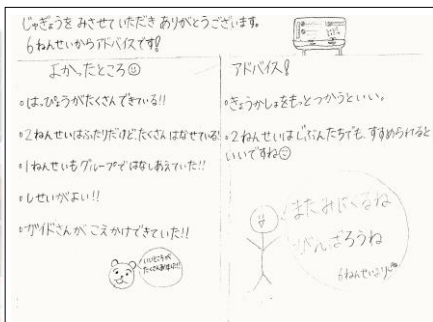 じゅぎょうを みさせていただき ありがとうございます。
6ねんせいからアドバイスです!
よかったところ
・はっぴょうがたくさんできている!!
・2ねんせいはふたりだけど、たくさんはなせている!
・1ねんせいもグループではなしあえていた!!
・しせいがよい!!
・ガイドさんが、こえかけできていた!!
いいところが
たくさんありました!!
アドバイス!
・きょうかしょをもっとつかうといい。
・2ねんせいはじぶんたちでも、すすめられると
いいですね
またみにくるね
がんばろうね
6ねんせいより